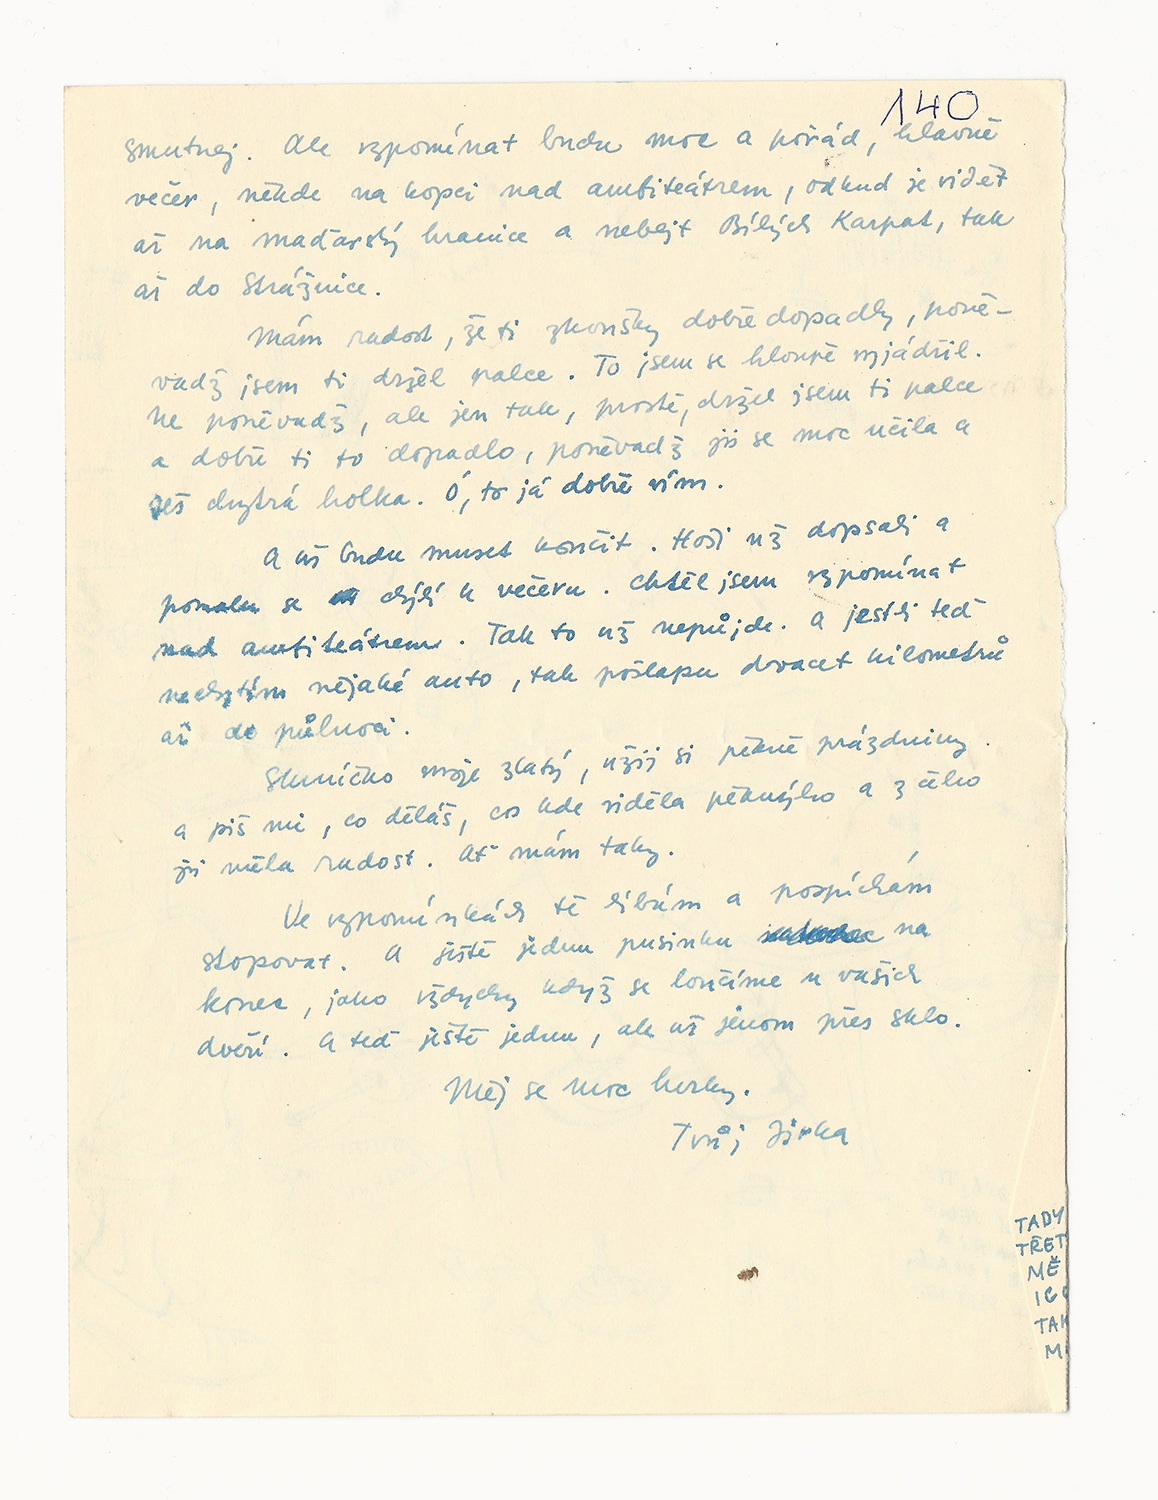 140
smutnej. Ale vzpomínat budu moc a pořád, hlavně
večer, někde na kopci nad amfiteátrem, odkud je vidět
až na maďarský hranice a nebejt Bílých Karpat, tak
až do Strážnice.
Mám radost, že ti zkoušky dobře dopadly, poně-
vadž jsem ti držel palce. To jsem se hloupě vyjádřil.
Ne poněvadž, ale jen tak, prostě, držel jsem ti palce
a dobře ti to dopadlo, poněvadž jsi se moc učila a
seš chytrá holka. Ó, to já dobře vím.
A už budu muset končit. Hoši už dopsali a
pomalu se chýlí k večeru. Chtěl jsem vzpomínat
nad amfiteátrem. Tak to už nepůjde. A jestli teď
nechytím nějaké auto, tak pošlapu dvacet kilometrů
až do půlnoci.
Sluníčko moje zlatý, užij si pěkně prázdniny
a piš mi, co děláš, cos kde viděla pěknýho a z čeho
jsi měla radost. Ať mám taky.
Ve vzpomínkách tě líbám a pospíchám
stopovat. A ještě jednu pusinku na
konec, jako vždycky když se loučíme u vašich
dveří. A teď ještě jednu, ale už jenom přes sklo.
Měj se moc hezky.
Tvůj Jirka
TADY
TŘET
MĚ
TAK
M